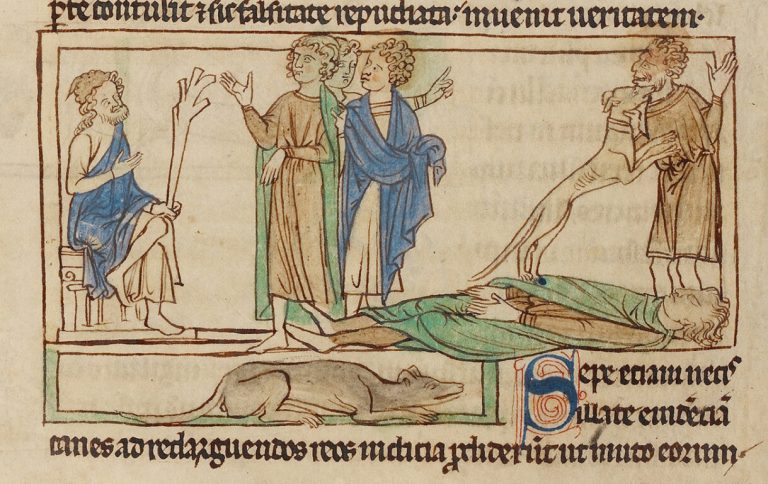 ꝑte contulit ⁊ sic falsitate repudiata· inuenit ueritatem·
Sepe eciam necis
illate euidēciā
canes ad redarguendos reos indicia ꝓdiderūt ut muto eorum·